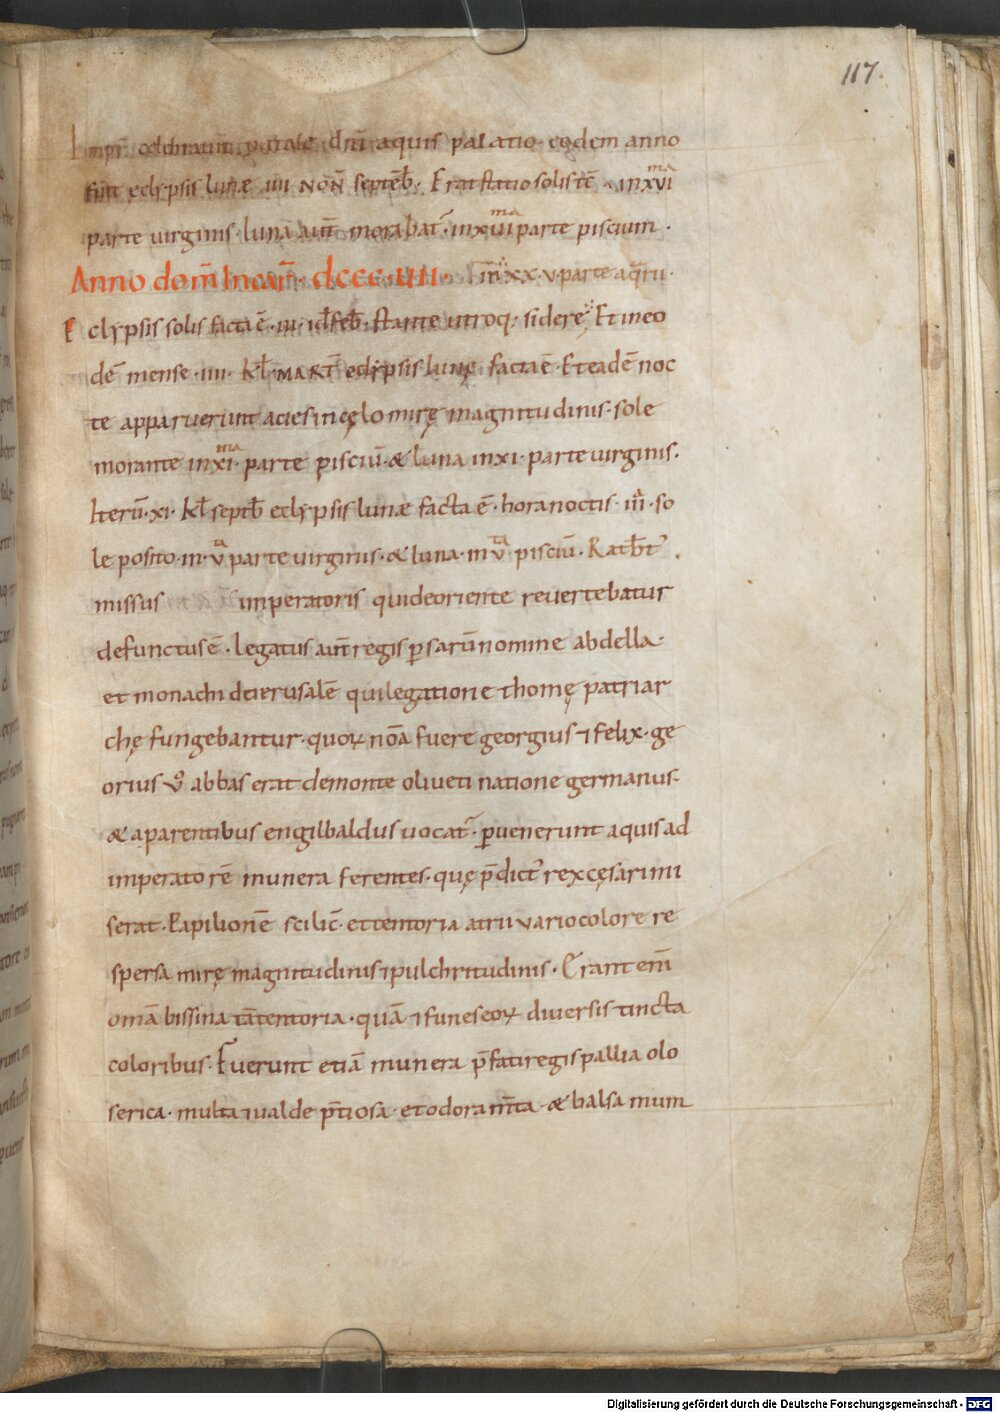 117.
Impr̄ celebrauit natale dn̄i aquis palatio· eodem anno
fuit eclypsis lunæ· iiii NON̄ septēb̄· Erat statio solis tc̄ · in xvi ma
parte virginis· luna aut̄ morabat̄· in xvi ma parte piscium ·
Anno dom̄ Incar̄· dcccvii· in xxv parte aq̄rii·
Eclypsis solis facta ē· iii· id̄ feb̄· stante utroq; sidere Et in eo
dē mense· iiii· kl̄· MART̄ eclypsis lunę facta ē· Et eadē noc
te apparuerunt acies in cęlo mirę magnitudinis· sole
morante in xi ma· parte pisciū· & luna in xi· parte uirginis·
Iterū· xi· kl̄ septb̄ eclypsis lunæ facta ē· hora noctis· iii a· so
le posito· in· v a parte uirginis· & luna· in v ta· pisciū· Ratb̄t ·
missus imperatoris qui de oriente reuertebatur
defunctus ē· Legatus aut̄ regis psarū nomine abdella·
et monachi de ierusalē qui legatione thomę patriar
chę fungebantur· quoꝝ nōa fuere georgius ⁊ felix· ge
orius v̊ abbas erat de monte oliueti natione germanus·
& a parentibus engilbaldus uocat̄· puenerunt aquis ad
imperatorē munera ferentes· quę p̄dict̄ rex cęsari mi
serat· Papilionē scilic̄· et tentoria atrii vario colore re
spersa mirę magnitudinis ⁊ pulchritudinis· Erant eni̅
om̄a bissina tā tentoria· quā ⁊ funes eoꝝ diuersis tincta
coloribus· Fuerunt etiā munera p̄fati regis pallia olo
serica· multa ⁊ ualde p̄tiosa· et odoram̄ta· & balsamum
Digitalisierung gefördert durch die Deutsche Forschungsgemeinschaft - DFG